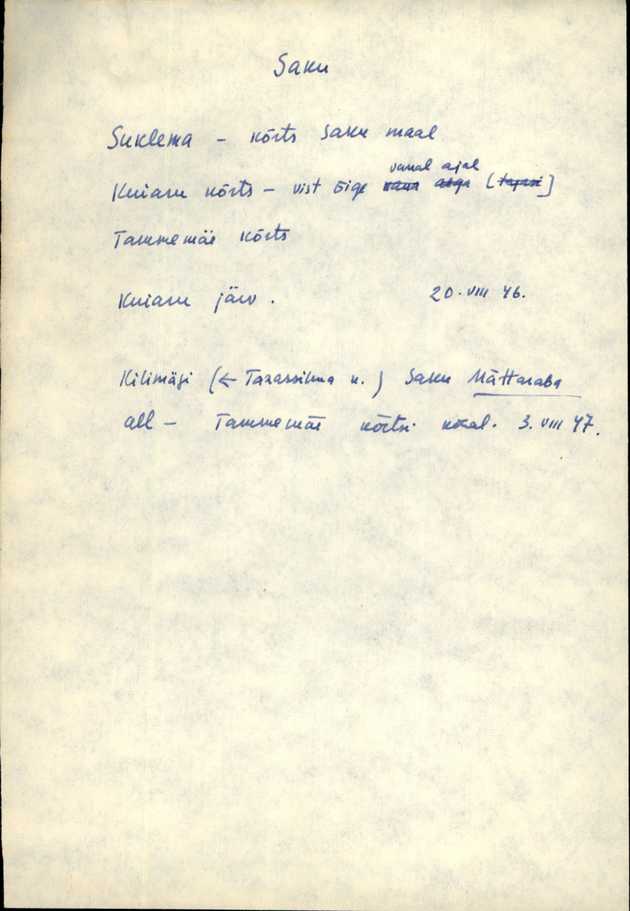 Saku
Suklema – kõrts Saku maal
Kuiaru kõrts – vist õige vanal ajal
Tammemäe kõrts
Kuiaru järv. 20. VIII 46.
Kilimägi (← Tagassilma k.) Saku Mättaraba
all – Tammemäe kõrtsi kõal. 3. VIII 47.